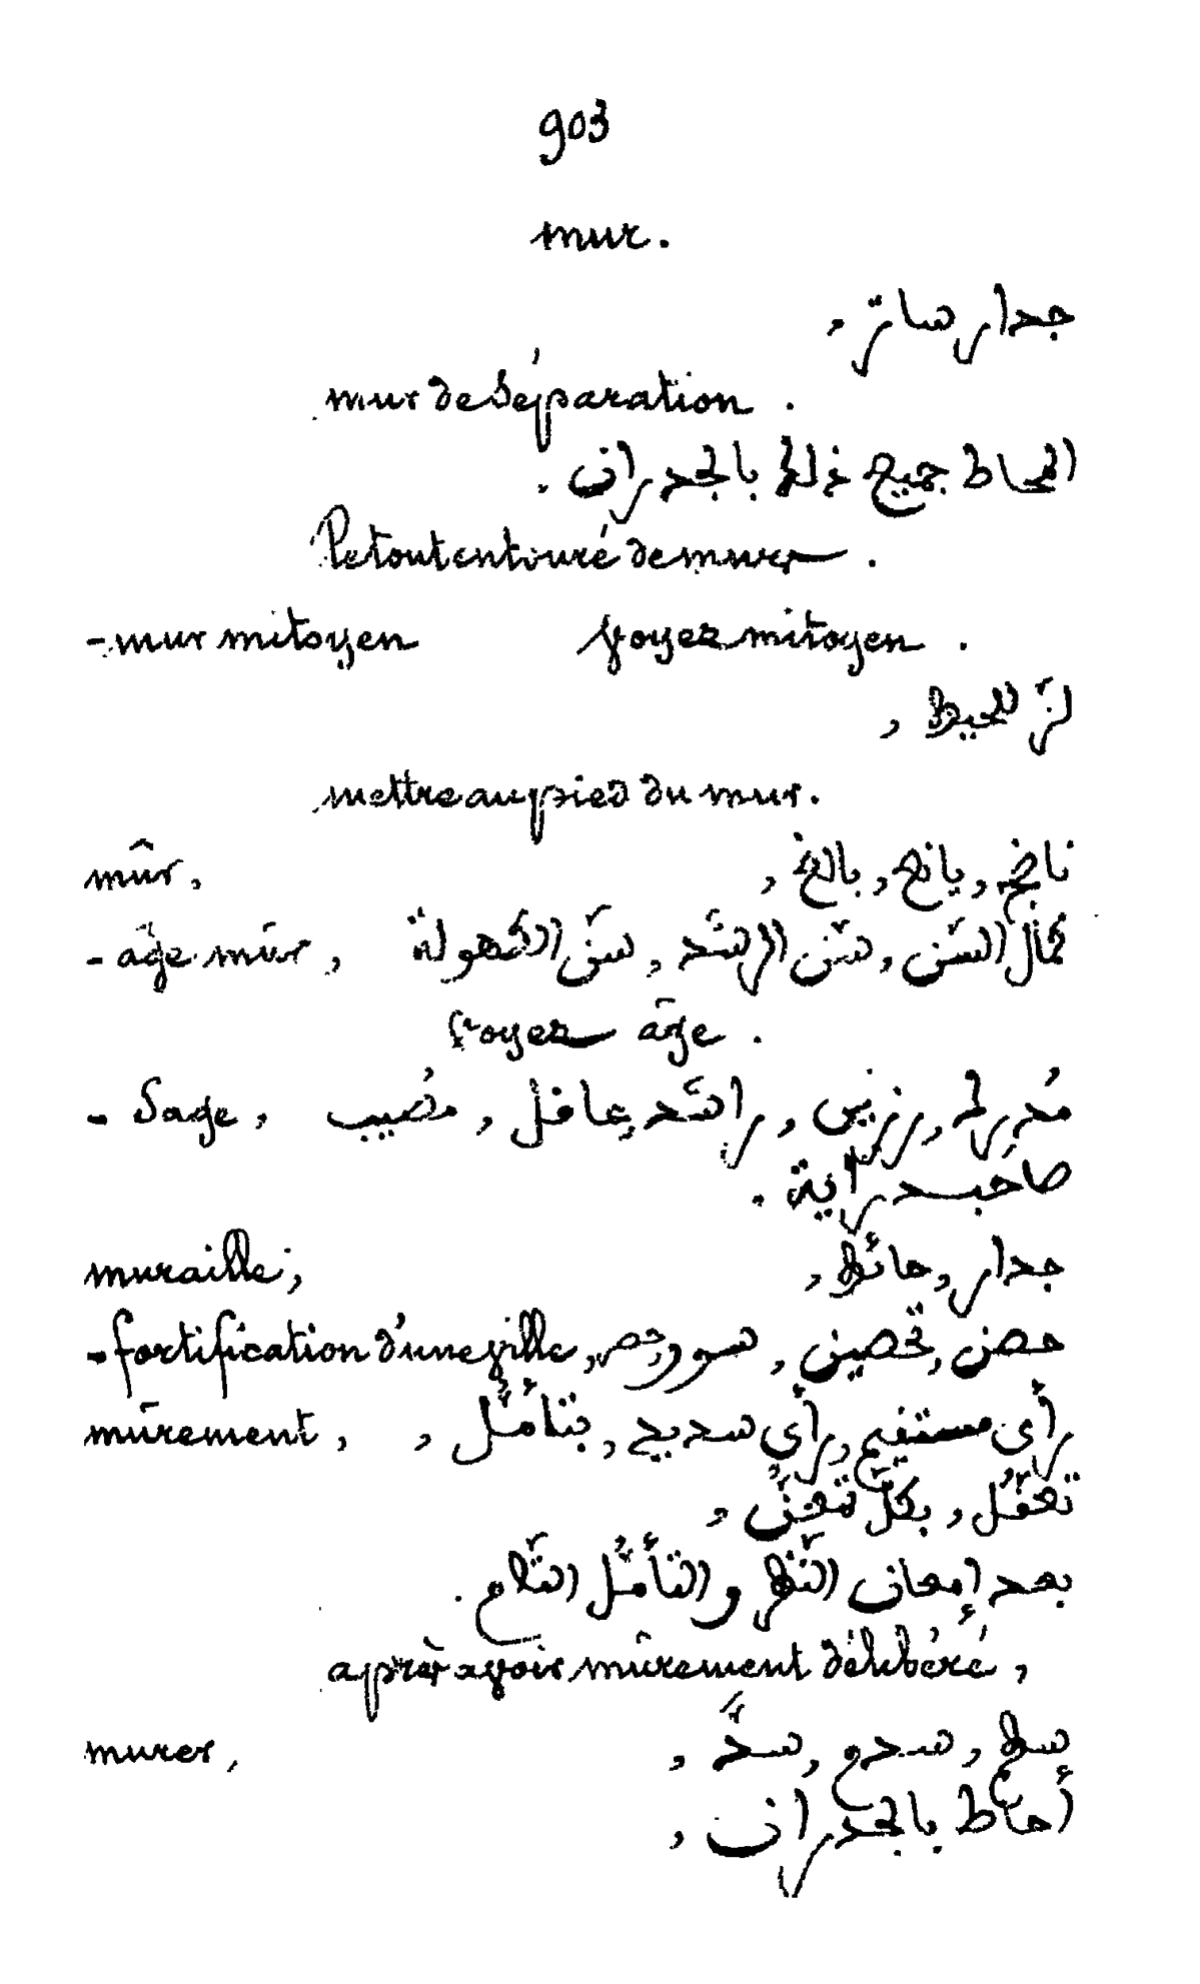 903
mur.
جدار ساتر,
mur de séparation.
المحاط جميع ذلك بالجدران.
Le tout entouré de murs.
- mur mitoyen voyez mitoyen.
لزّ للحيط,
mettre au pied du mur.
mûr, ناضج, يانع, بالغ,
- âge mûr, كمال السّن, سّن الرشد, سنّ الكهولة
voyez âge.
- Sage, مُدرك, رزين, راشد عاقل, مُصيب
صاحب دراية.
muraille; جدار, حائط,
- fortification d'une ville, حصن, تحصين, سور,
mûrement, رأي مستقيم, رأي سديد, بتأمُّل,
تعقُّل, بكلّ تمعّن,
بعد إمعان النّظر والتأمُّل التّام.
après avoir mûrement délibéré,
murer, سدم, سدّ,
أحاط بالجدران,